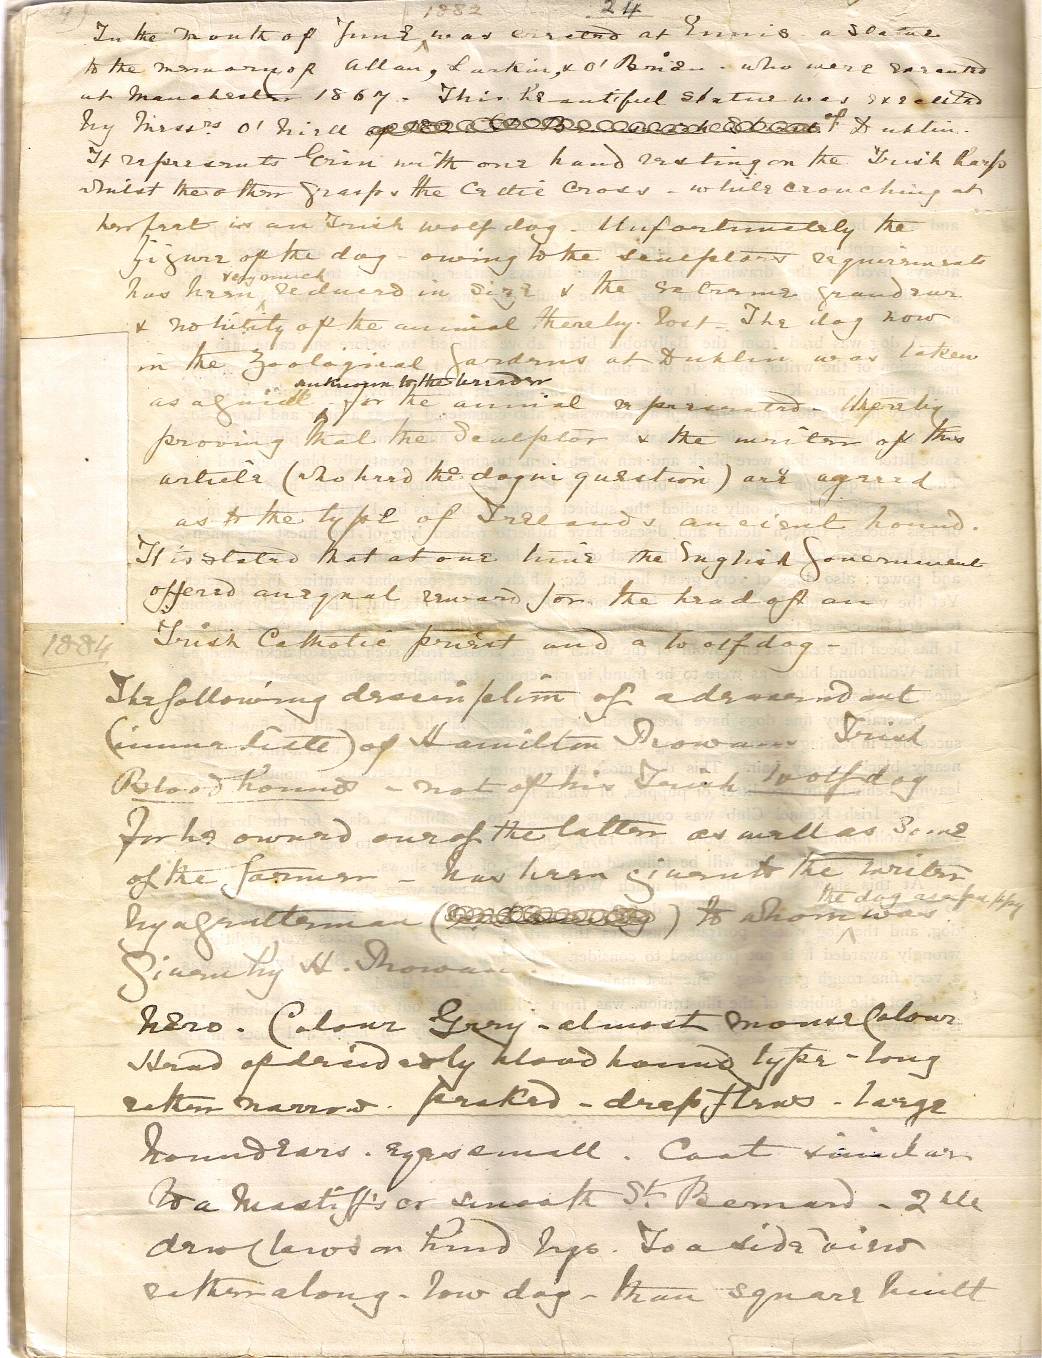 1882 24
In the month of June was erected at Ennis a Statue
to the memory of Allan, Larkin, & O'Brien - who were executed
at Manchester 1867 - This beautiful statue was executed
by Messrs O'Neill of Dublin.
It represents Erin with one hand resting on the Irish harp
whilst the other grasps the Celtic Cross - while crouching at
her feet is an Irish wolf dog - Unfortunately the
figure of the dog - owing to the sculptors requirements
has been very much reduced in size & the extreme grandeur
& nobility of the animal thereby lost - The dog now
in the Zoological Gardens at Dublin was taken
unknown to the breeder
as a guide for the animal represented - thereby
proving that the Sculptor & the writer of this
article (who bred the dog in question) are agreed
as to the type of Ireland's ancient hound.
It is stated that at one time the English Government
offered an equal reward for the head of an
1884 Irish Catholic priest and a wolf dog -
The following description of a descendant
(immediate) of Hamilton Rowans Irish
Blood hounds - not of his Irish Wolf dog
for he owned one of the latter as well as some
of the former - has been given to the writer
the dog as a puppy
by a gentleman ( ) to whom was
given by H. Rowan.
Nero - Colour Grey - almost mouse Colour
Head of decidedly bloodhound type - long
rather narrow. peaked - deep flews - large
hound ears. eyes small. Coat similar
to a Mastiff's or smooth St Bernard - 2
dew claws on hind legs. To a side view
rather a long - low dog - than square built